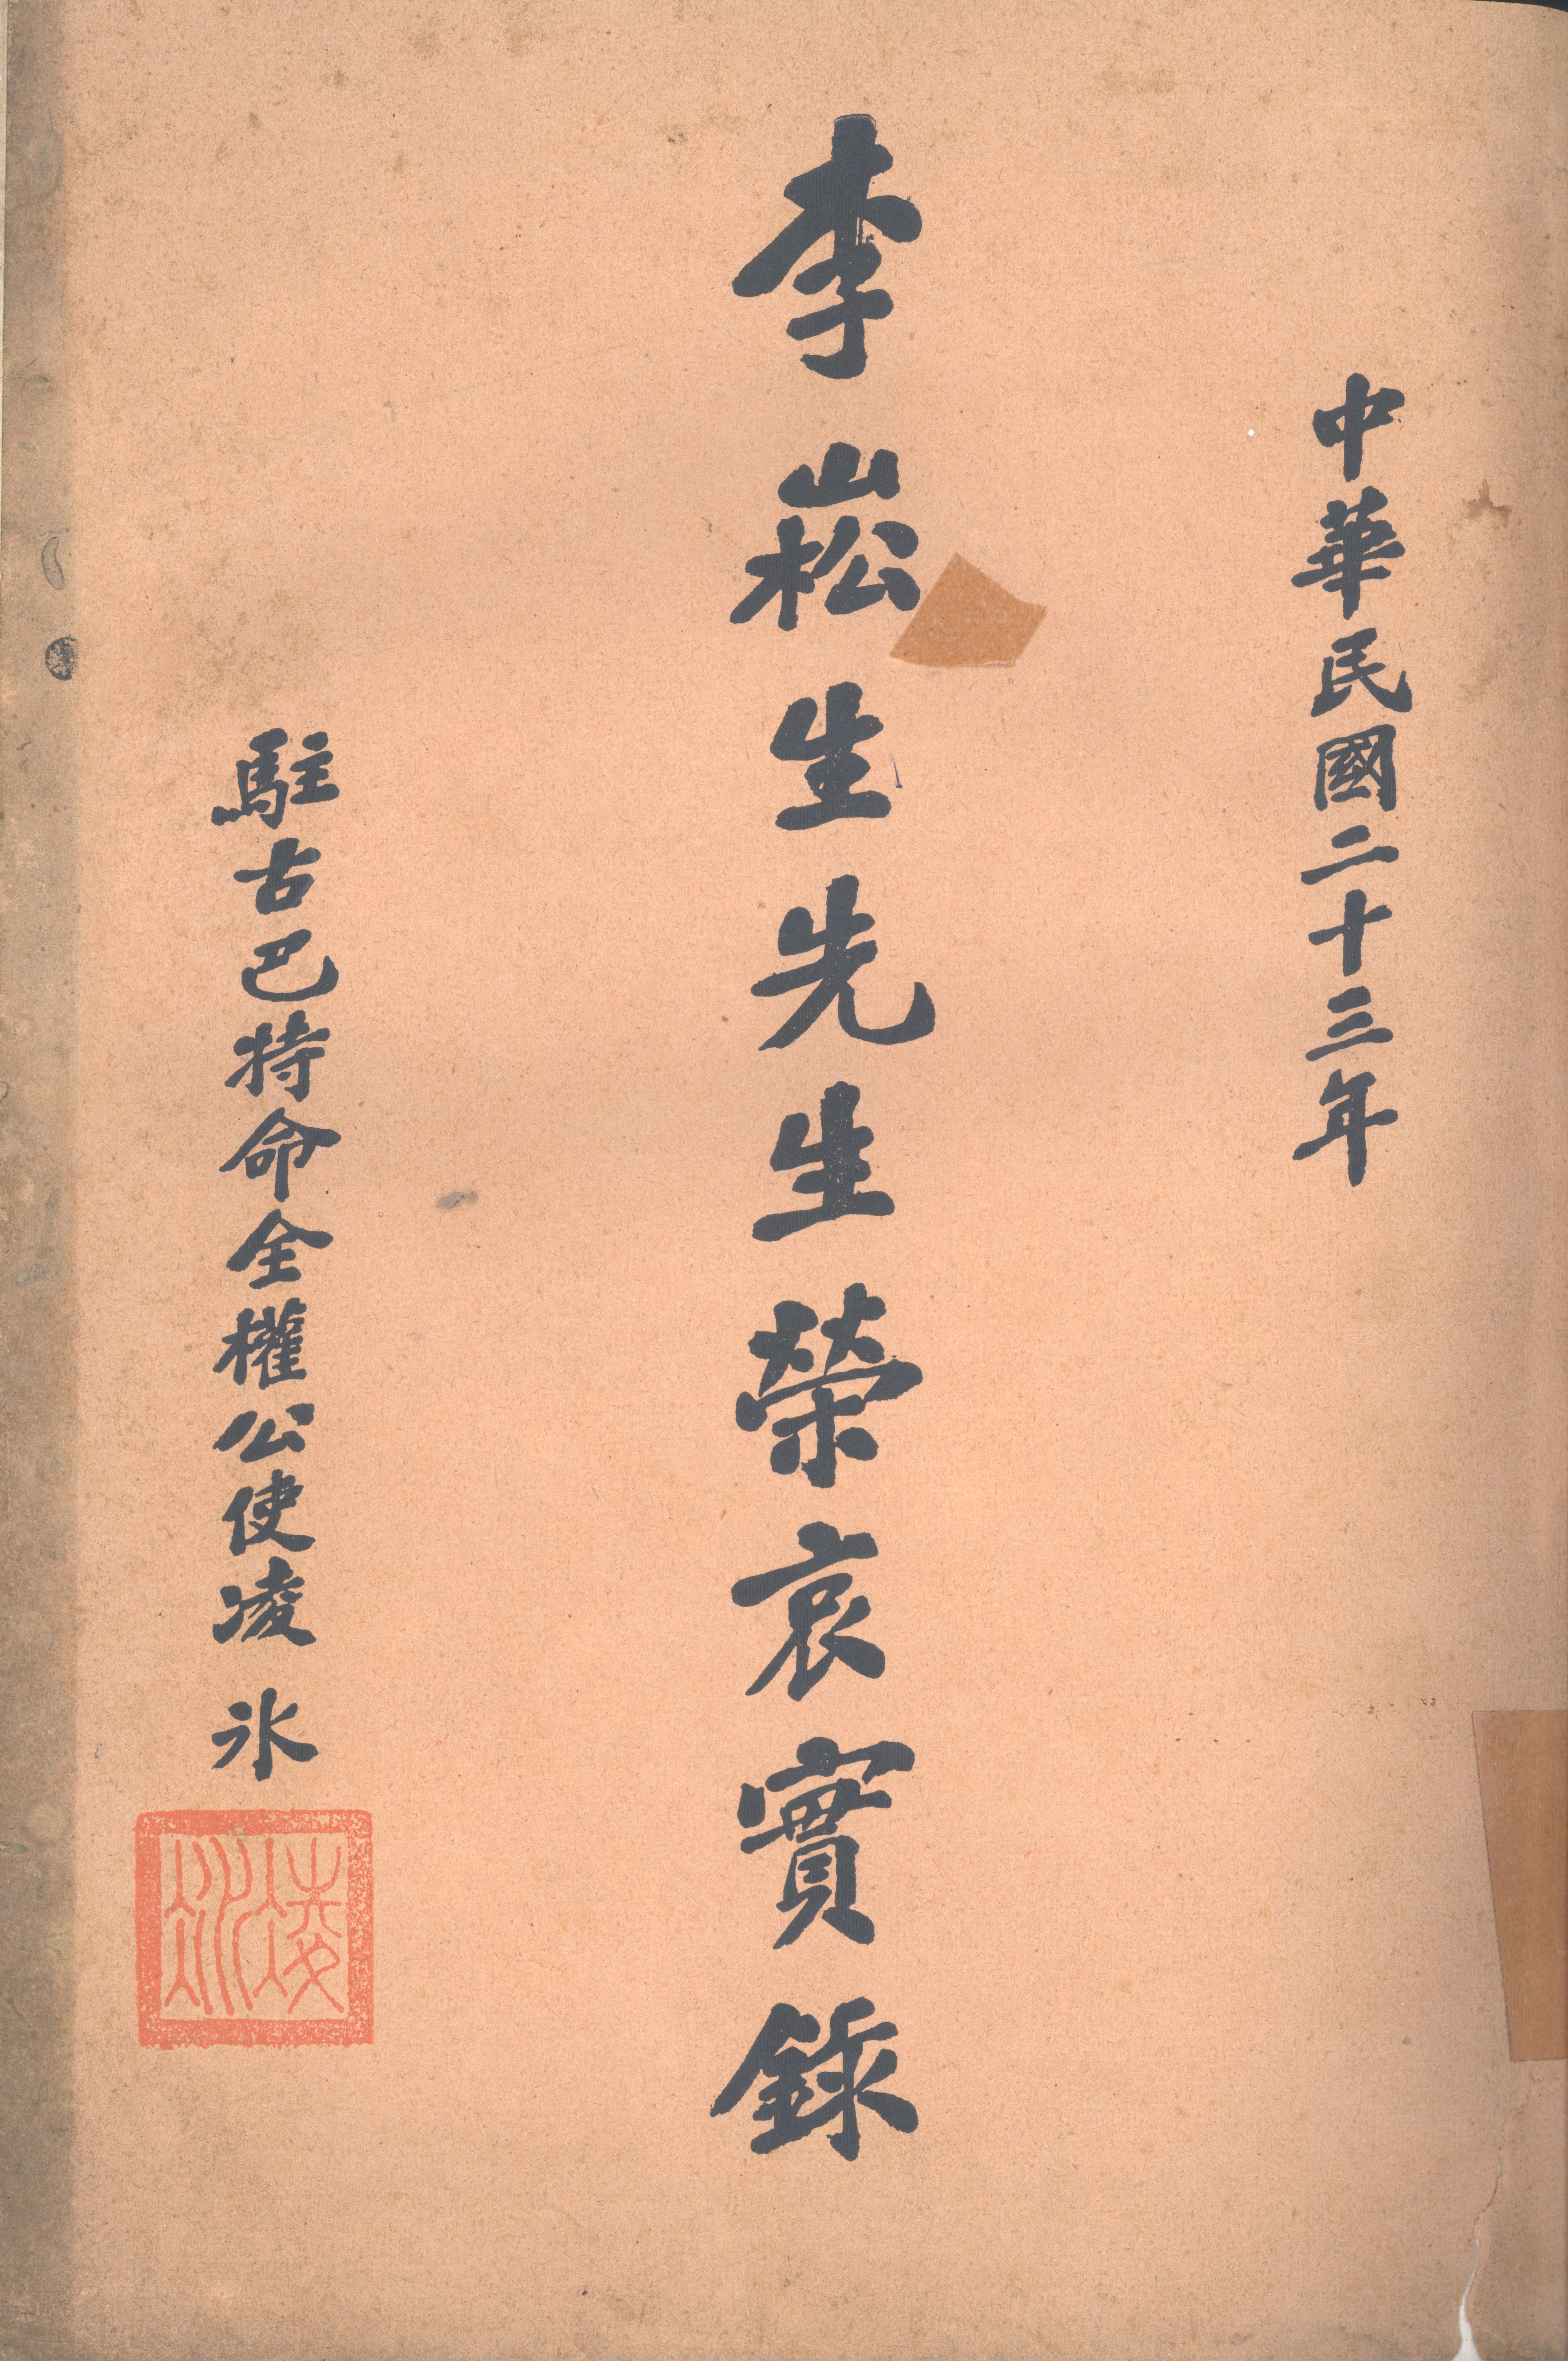 中華民國二十三年
李崧生先生榮哀實錄
駐古巴特命全權公使凌冰
凌冰